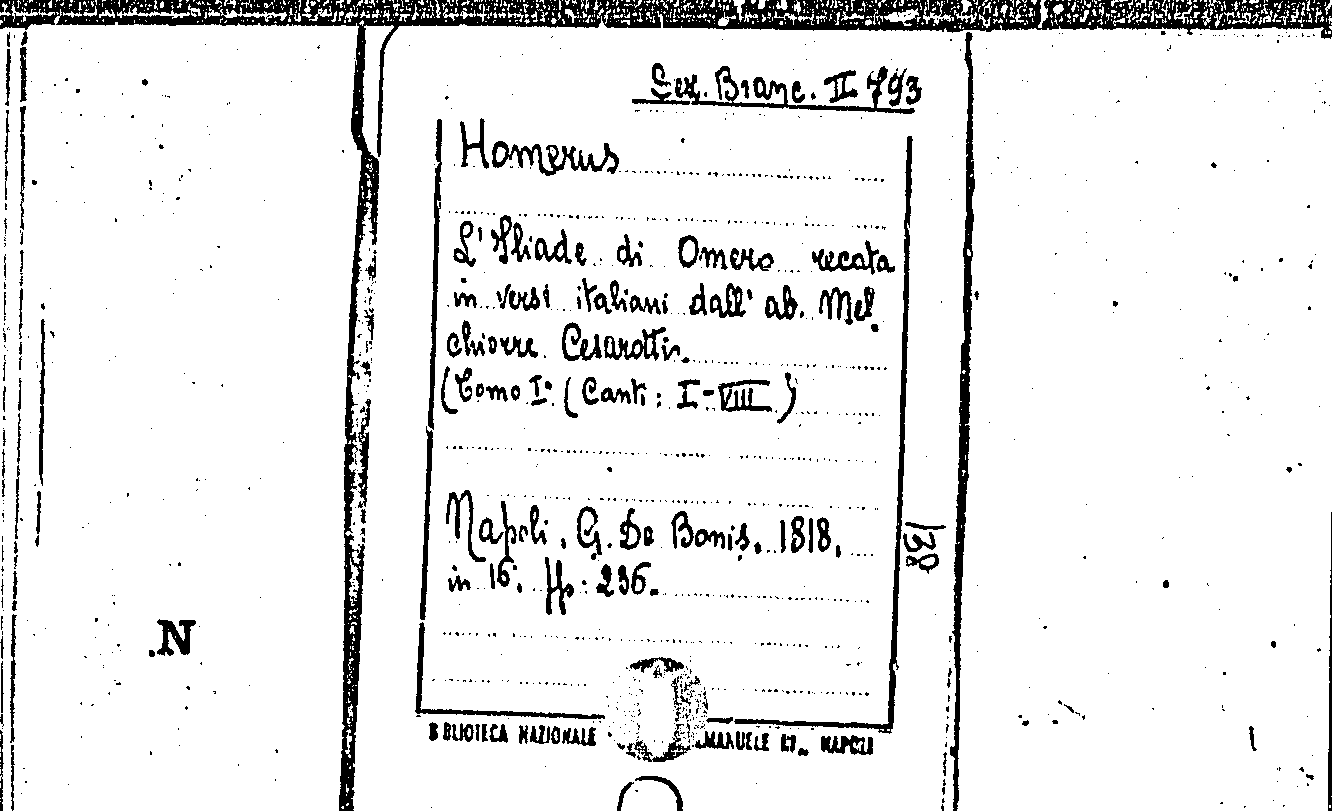 Sez. Branc. II 793
Homerus
L'Iliade di Omero recata
in versi italiani dall' ab. Mel
chiorre Cesarotti.
(Tomo I° (Canti: I-VIII)
Napoli, G. De Bonis, 1818,
in 16°. pp: 236.
BIBLIOTECA NAZIONALE MANUELE NAPOLI
N.